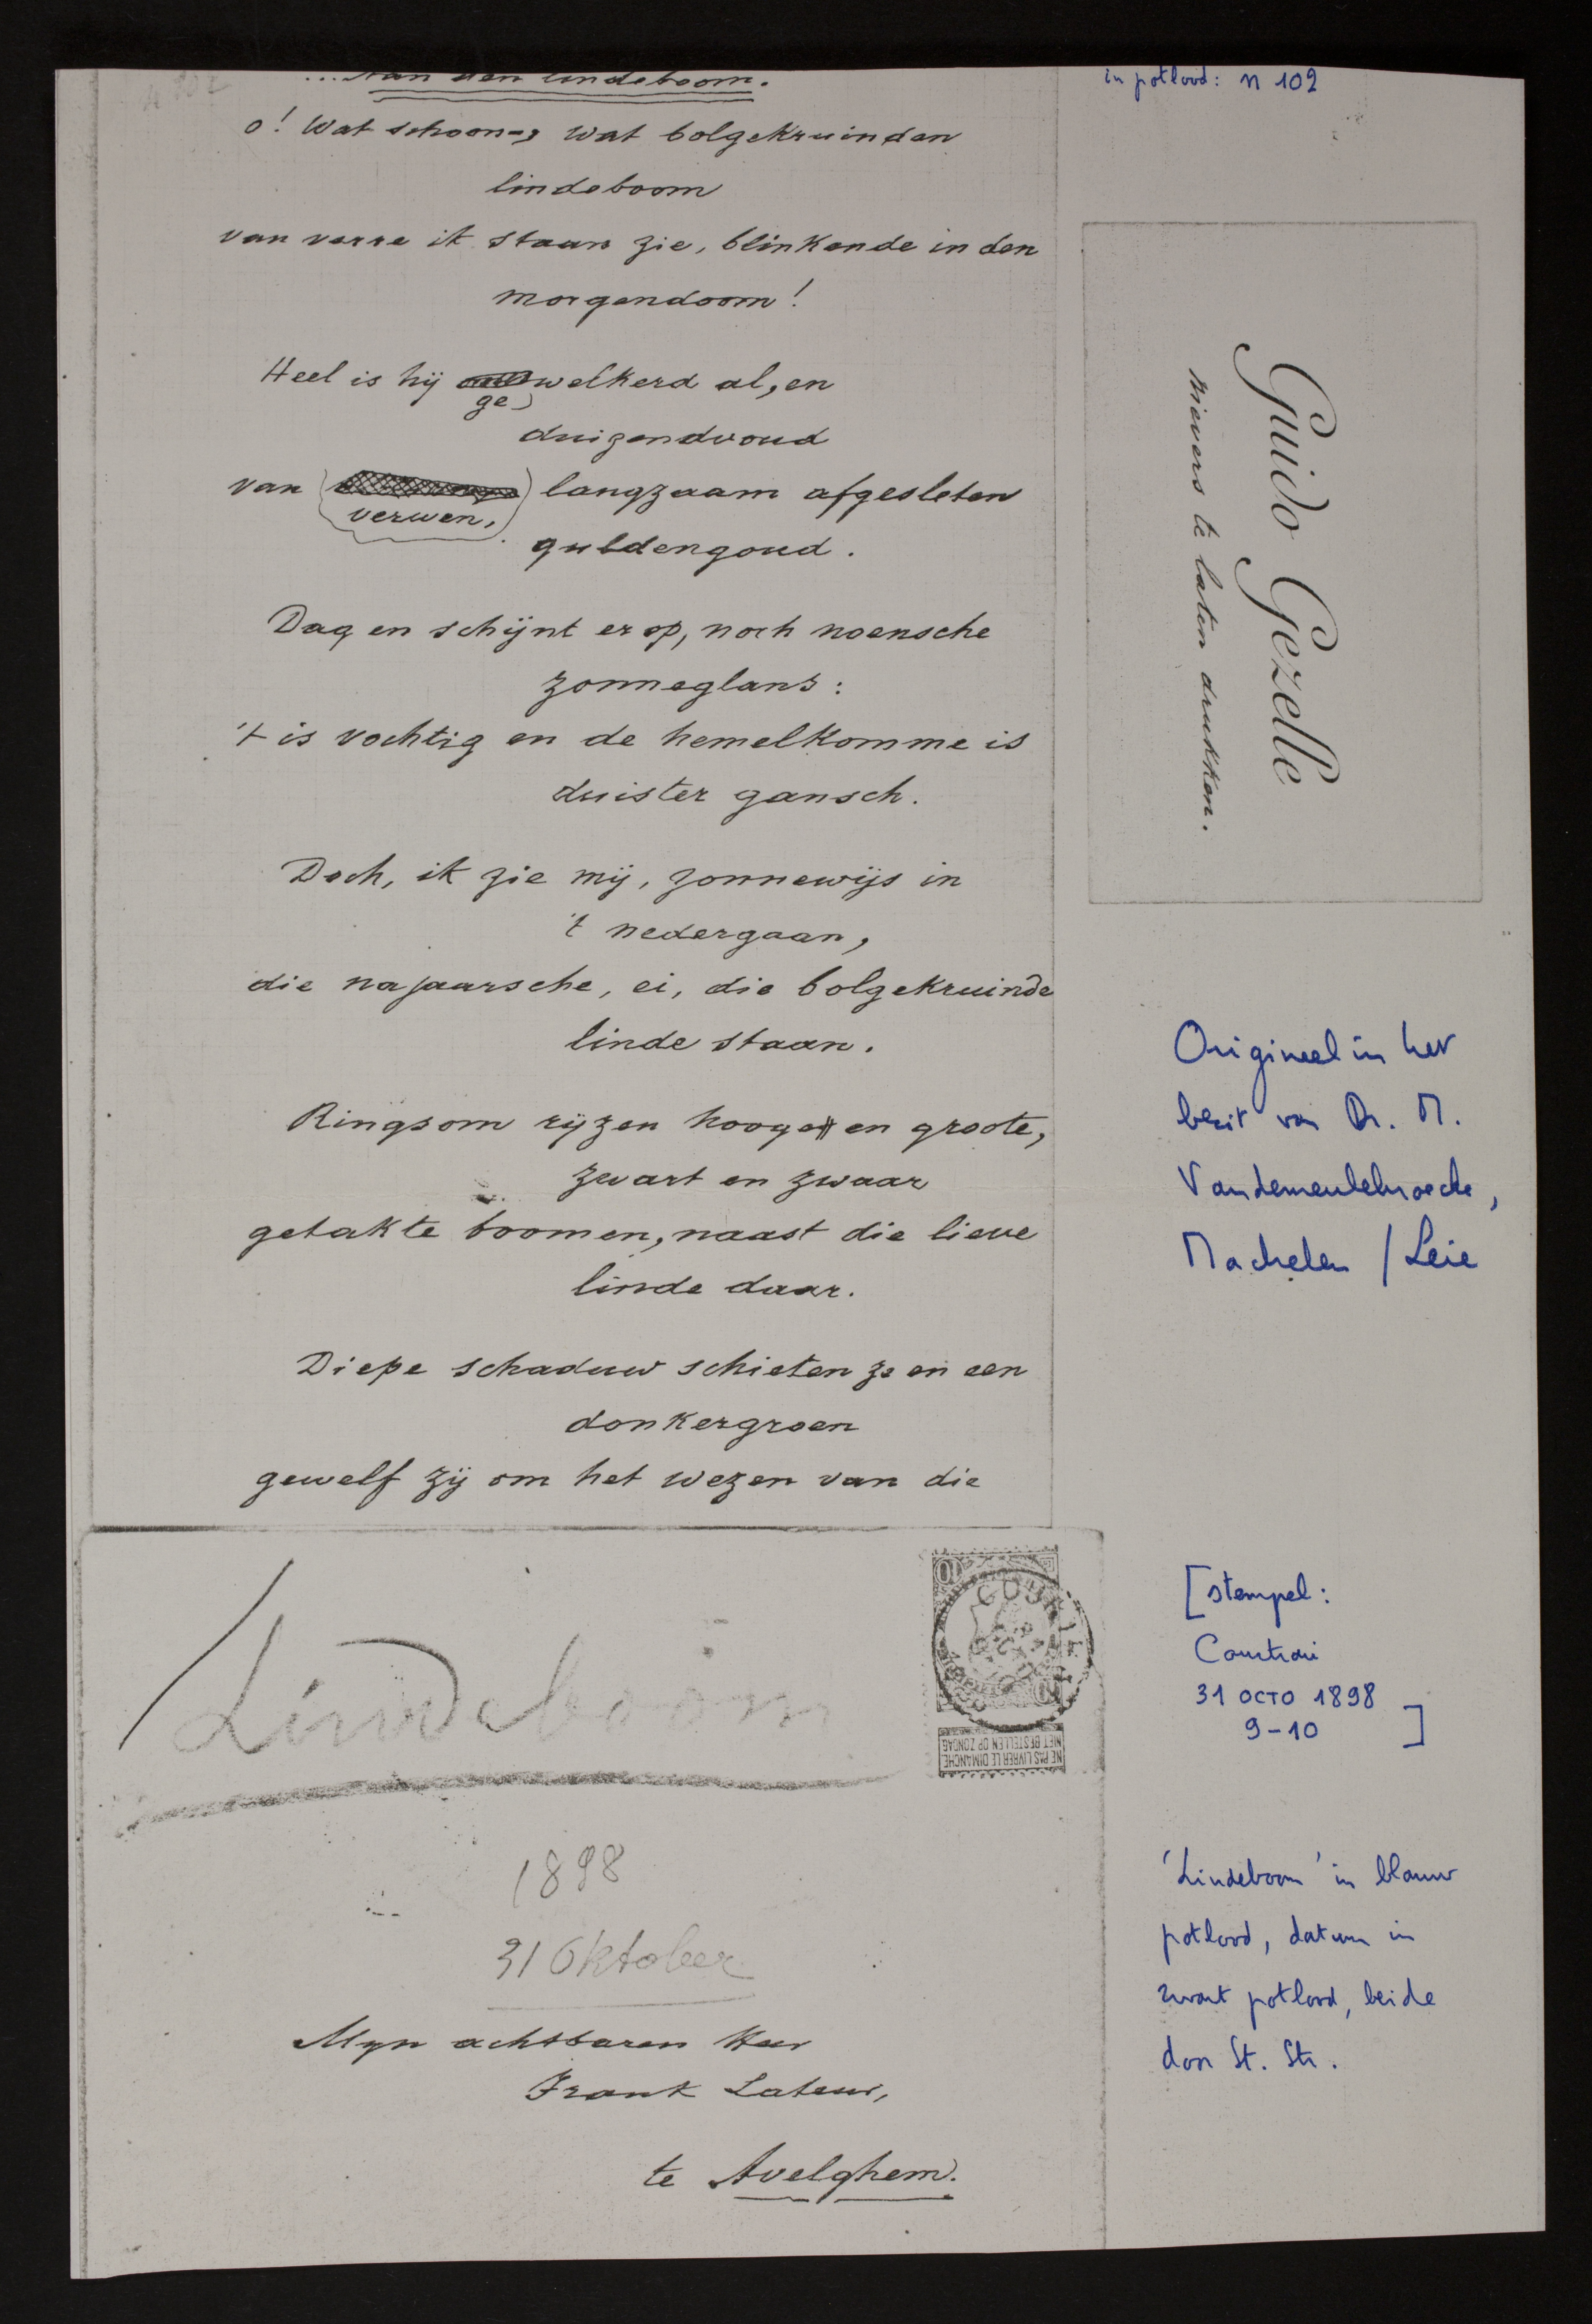 ...Aan den lindeboom.
o! Wat schoon-, wat bolgekruinden
lindeboom
van verre ik staan zie, blinkende in den
morgendoom!
Heel is hij welkerd al, en
ge
duizendvoud
van langzaam afgesleten
verwen,
guldengoud.
Dag en schijnt er op, noch noensche
zonneglans:
't is vochtig en de hemelkomme is
duister gansch.
Doch, ik zie mij, zonnewijs in
't nedergaan,
die najaarsche, ei, die bolgekruinde
linde staan.
Ringsom rijzen hooge en groote,
zwart en zwaar
getakte boomen, naast die lieve
linde daar.
Diepe schaduw schieten ze en een
donkergroen
gewelf zij om het wezen van die
Lindeboom
1898
31 Oktober
Myn achtbaren Heer
Frank Lateur,
te Avelghem.
10
COURTRAI
NE PAS LIVRER LE DIMANCHE
NIET BESTELLEN OP ZONDAG
in potlood: n 102
Guido Gezelle
nievers te laten drukken.
Origineel in het
bezit van Dr. M.
Vandemeulebroecke,
Machelen / Leie
[stempel:
Courtrai
31 OCTO 1898
9-10 ]
'Lindeboom' in blauw
potlood, datum in
zwart potlood, beide
door St. Str.